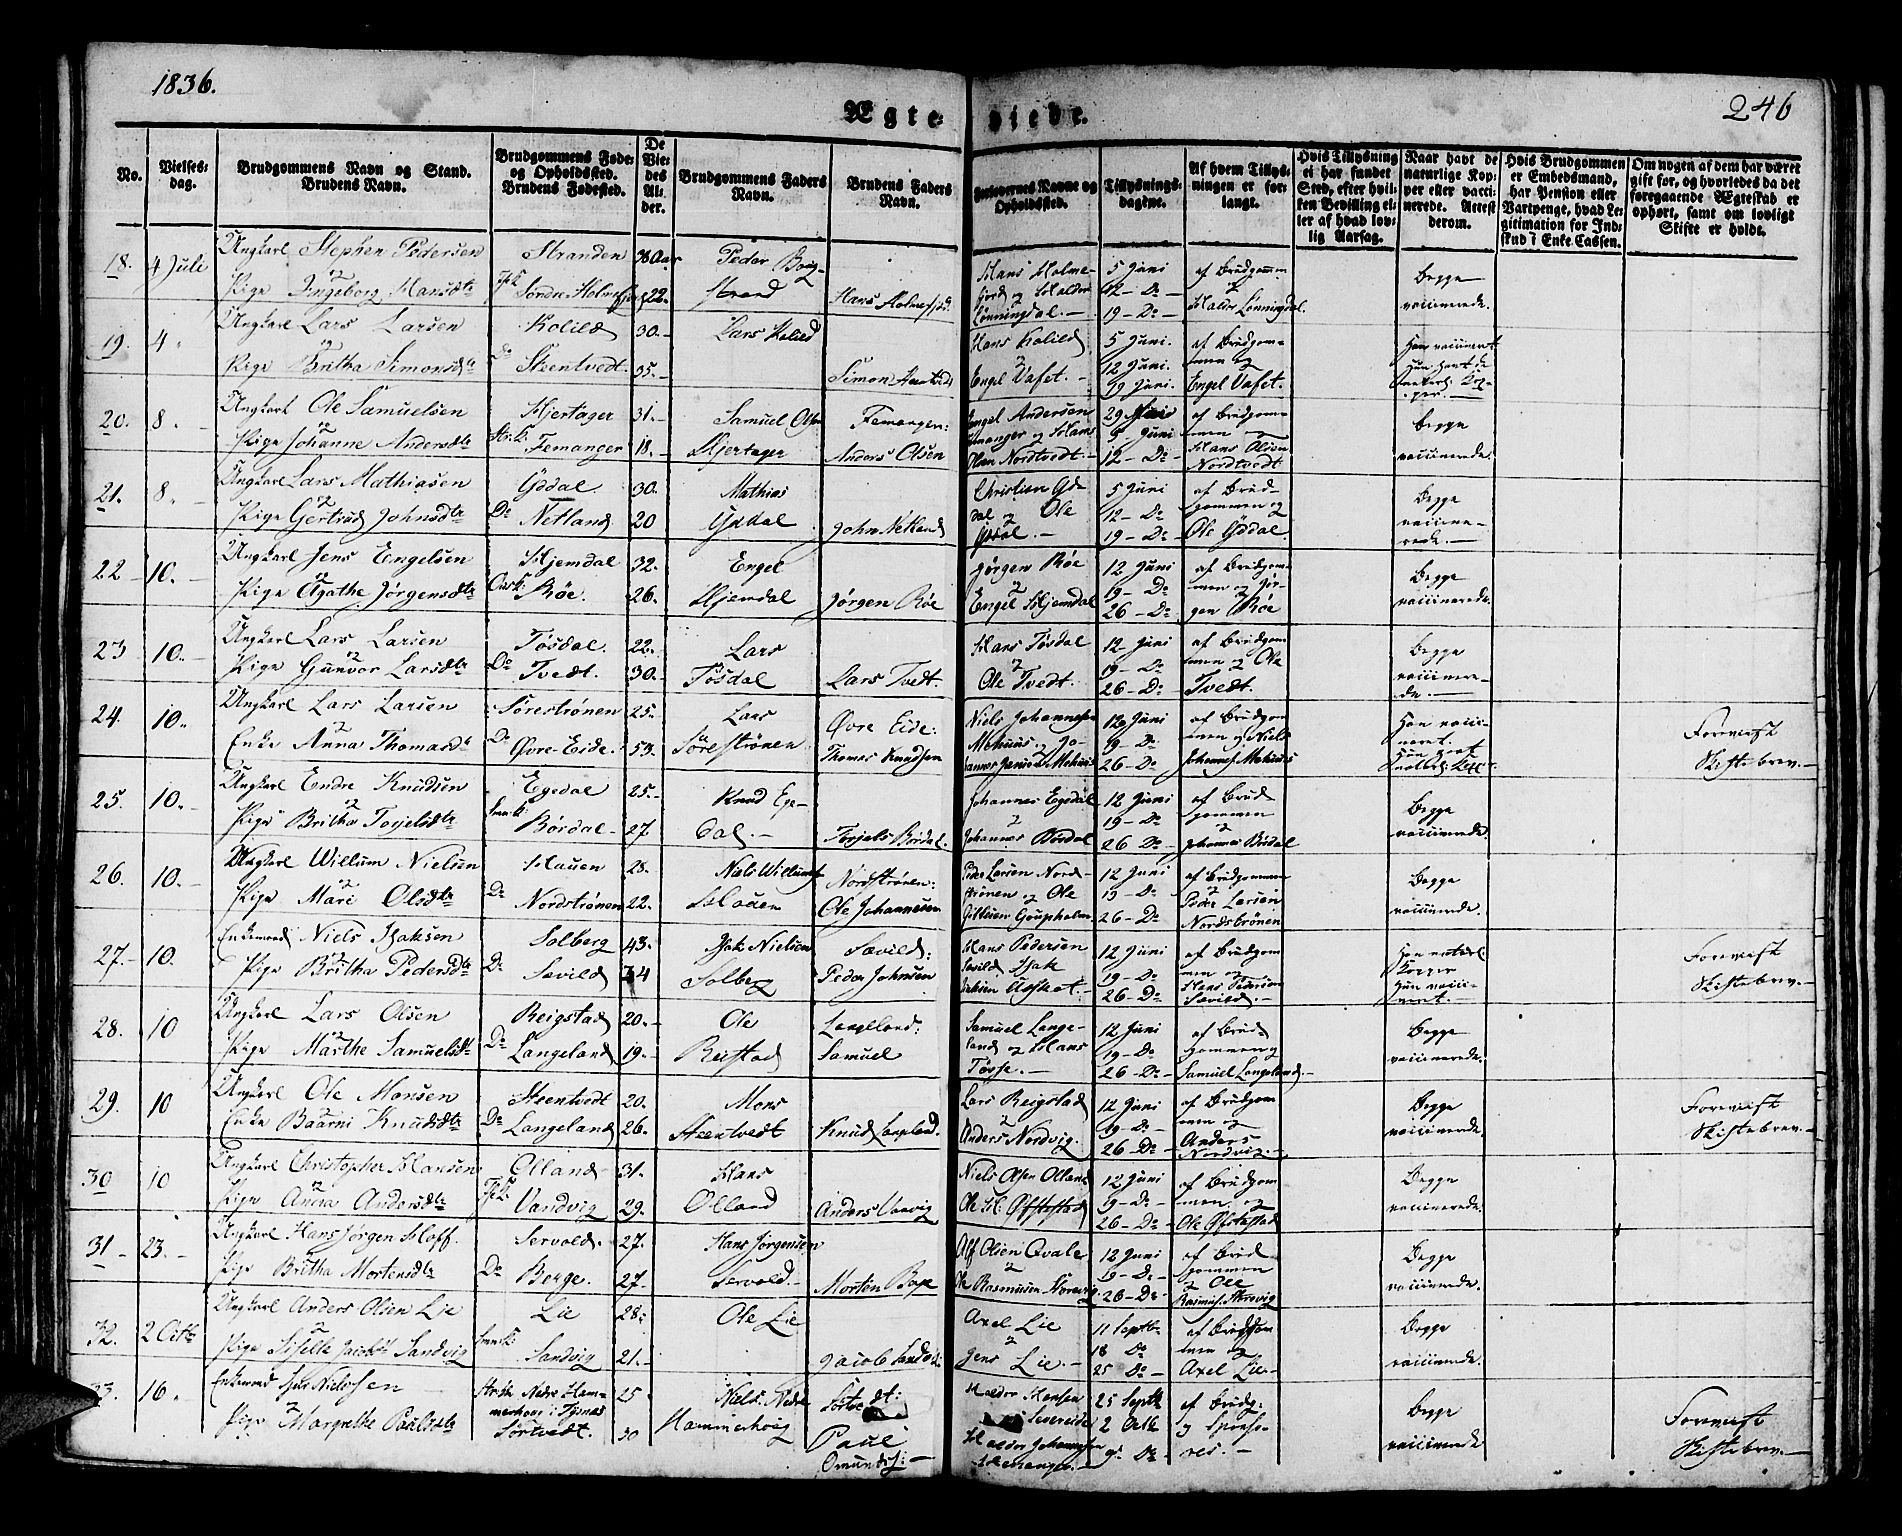 1836.
246
Ægte- viede.
No.
Vielses-dag.
Brudgommens Navn og Stand. Brudens Navn.
Brudgommens Føde- og Opholdssted. Brudens Fødested.
De Vie- des Al- der.
Brudgommens Faders Navn.
Brudens Faders Navn.
Forlovernes Navne og Opholdssted.
Tillysnings-dagene.
Af hvem Tillys-ningen er for-langt.
Hvis Tillysning ei har fundet Sted, efter hvil-ken Bevilling el-ler af hvad lov-lig Aarsag.
Naar havt de naturlige Kop-per eller vacci-nerede. Attest derom.
Hvis Brudgommen er Embedsmand, har Pension eller Vartpenge, hvad Le-gitimation for Ind-skud i Enke-Cassen.
Om nogen af dem har været gift før, og hvorledes da det foregaaende Ægteskab er ophørt, samt om lovligt Skifte er holdt.
18. 4 Juli Ungkarl Stephen Pedersen Stranden 38 Aar Peder
Pige Ingeborg Hansdtr Søndre Holmefjord 22. Strand Hans Holmefjord
5 Juni 12 - Do 19 - Do af Brudgommen & Halder Lønningdal. Begge vaccinerede.
19. 4 Ungkarl Lars Larsen Kolild 30. Lars Kolild
Pige Britha Simonsdtr Do Steentvedt. 35. Simon
Hans Kolild & Engel Vafet. 5 Juni. 12 Juni. 19 Juni. af Brudgommen og Engel Vafet.
20. 8. Ungkarl Ole Samuelsen Hjertager 31. Samuel Olsen Femanger:
Pige Johanne Andersdtr Femanger 18. Hjertager Anders Olsen
Engel Andersen Femanger og Hans Olsen Nordtvedt. 5 Juni 12 - Do af Brudgommen Hans Olsen Nordtvedt Begge vaccinerede.
21. 8. Ungkarl Lars Mathiasen Yddal. 30. Mathias
Pige Gertrud Johnsdtr Do Netland 20 Yddal John Netland
Christien Yddal og Ole Yddal. 5 Juni 12 - Do 19 - Do af Brudgommen og Ole Yddal Begge vaccinerede.
22 10. Ungkarl Jens Engelsen Hjemdal 32. Engel
Pige Agathe Jørgensdtr Røe. 26. Hjemdal Jørgen Røe
Jørgen Røe & Engel Hjemdal 12 Juni 19 - Do 26 - Do af Brudgommen og Jørgen Røe Begge vaccinerede.
23 10. Ungkarl Lars Larsen Tøsdal. 22. Lars
Pige Gunvor Larsdtr Do Tvedt. 30. Tøsdal Lars Tvedt.
Hans Tøsdal & Ole Tvedt. 12 Juni 19 - Do 26 - Do af Brudgommen og Ole Tvedt Begge vaccinerede.
24. 10. Ungkarl Lars Larsen Sørestrønen 25. Lars Øvre Eide:
Enke Anna Thomasdtr Do Øvre-Eide. 53. Sørestrønen Thomas Knudsen
12 Juni 19 - Do 26 - Do af Brudgommen og Niels Johannes. Forevist Skiftebrev.
25. 10. Ungkarl Endre Knudsen Egedal 25. Knud Ege-
Pige Britha Torjelsdtr Børdal 27 dal. Torjels Børdal.
Johannes Egedal & Johannes Børdal 12 Juni 19 - Do 26 - Do af Brudgommen & Johannes Børdal Begge vaccinerede.
26. 10. Ungkarl Willum Nielsen Hauen 28. Niels Willums Nordstrønen:
Pige Mari Olsdtr Do Nordstrønen 22. Hauen Ole Johannesen
Peder Larsen Nordstrønen og Ole 12 Juni 19 - Do 26 - Do af Brudgommen & Peder Larsen Nordstrønen Begge vaccinerede.
27. 10. Enkemand Niels Isaksen Solberg 43. Isak Nielsen Sævild:
Pige Britha Pedersdtr Do Sævild 34 Solberg Peder Johnsen
Hans Pedersen Sævild Isak 12 Juni 19 - Do 26 - Do af Brudgommen og Hans Pedersen Sævild. Forevist Skiftebrev.
28. 10 Ungkarl Lars Olsen Reigstad 20. Ole Langeland:
Pige Marthe Samuelsdtr Do Langeland 19. Reistad Samuel
Samuel Langeland og Hans Tøsse. 12 Juni 19 - Do 26 - Do af Brudgommen og Samuel Langeland. Begge vaccinerede.
29. 10 Ungkarl Ole Monsen Steentvedt 20. Mons
Enke Baarni Knudsdtr Do Langeland 26. Steentvedt Knud Langeland.
Lars Reigstad & Anders Nordvig. 12 Juni 19 - Do 26 - Do af Brudgommen og Anders Nordvig. Begge vaccinerede. Forevist Skiftebrev.
30 10 Ungkarl Christopher Hansen Ølland 31. Hans
Pige Anna Andersdtr Vandvig 29. Ølland Anders
Niels Olsen Ølland 12 Juni 19 - Do 26 - Do af Brudgommen og Ole Begge vaccinerede.
31 23. Ungkarl Hans Jørgen Hloff. Servold. 27. Hans Jørgensen
Pige Britha Mortensdtr Do Berge. 27. Servold. Morten Berge
Alf Olsen Qvale & Ole Rasmusen 12 Juni 19 - Do 26 - Do af Brudgommen & Ole Begge vaccinerede.
32. 2 Octb Ungkarl Anders Olsen Lie Lie 28. Ole Lie
Pige Siselle Jacobs Sandvig Sandvig 21. Jacob Sandvig
Axel Lie & Jens Lie. 11 Septbr 18 Do 25 Do af Brudgommen og Axel Lie. Begge vaccinerede.
33. 16. Enkemand Nielssen Nedre Hammerhoug i Tysnes 25 Niels. Nedre
Pige Margrethe Paulsdtr Sørtvedt. 30 Hammerhoug Paul Omunds.
Haldor Hansen Haldor Johannesen 25 Septb 2 Octb 9 Do af Brudg: og Sponsores. Begge vaccinerede. Forevist Skiftebrev.